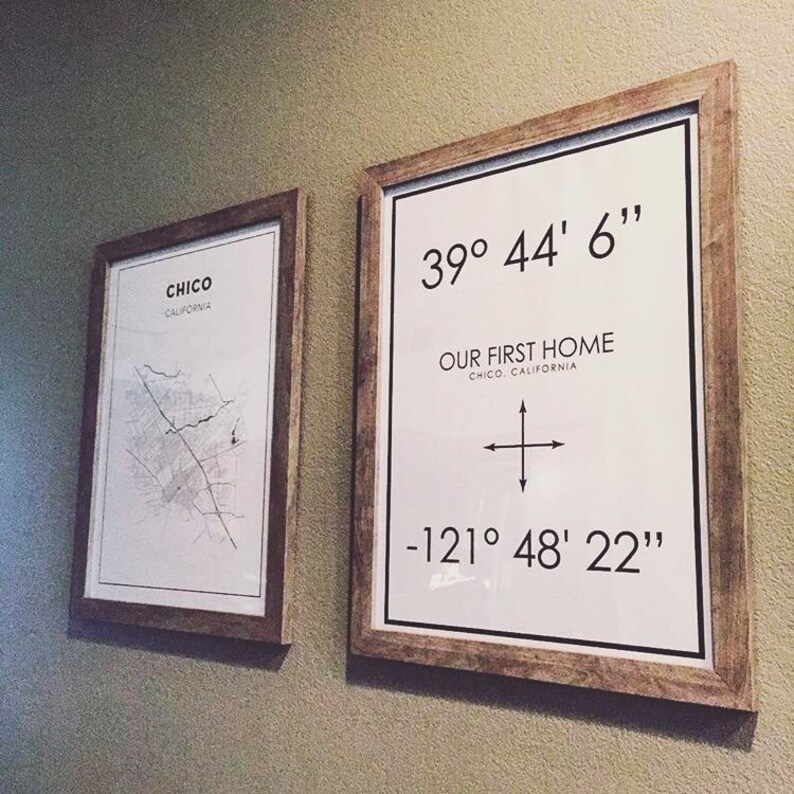 CHICO
CALIFORNIA
39º 44' 6”
OUR FIRST HOME
CHICO, CALIFORNIA
-121º 48' 22”